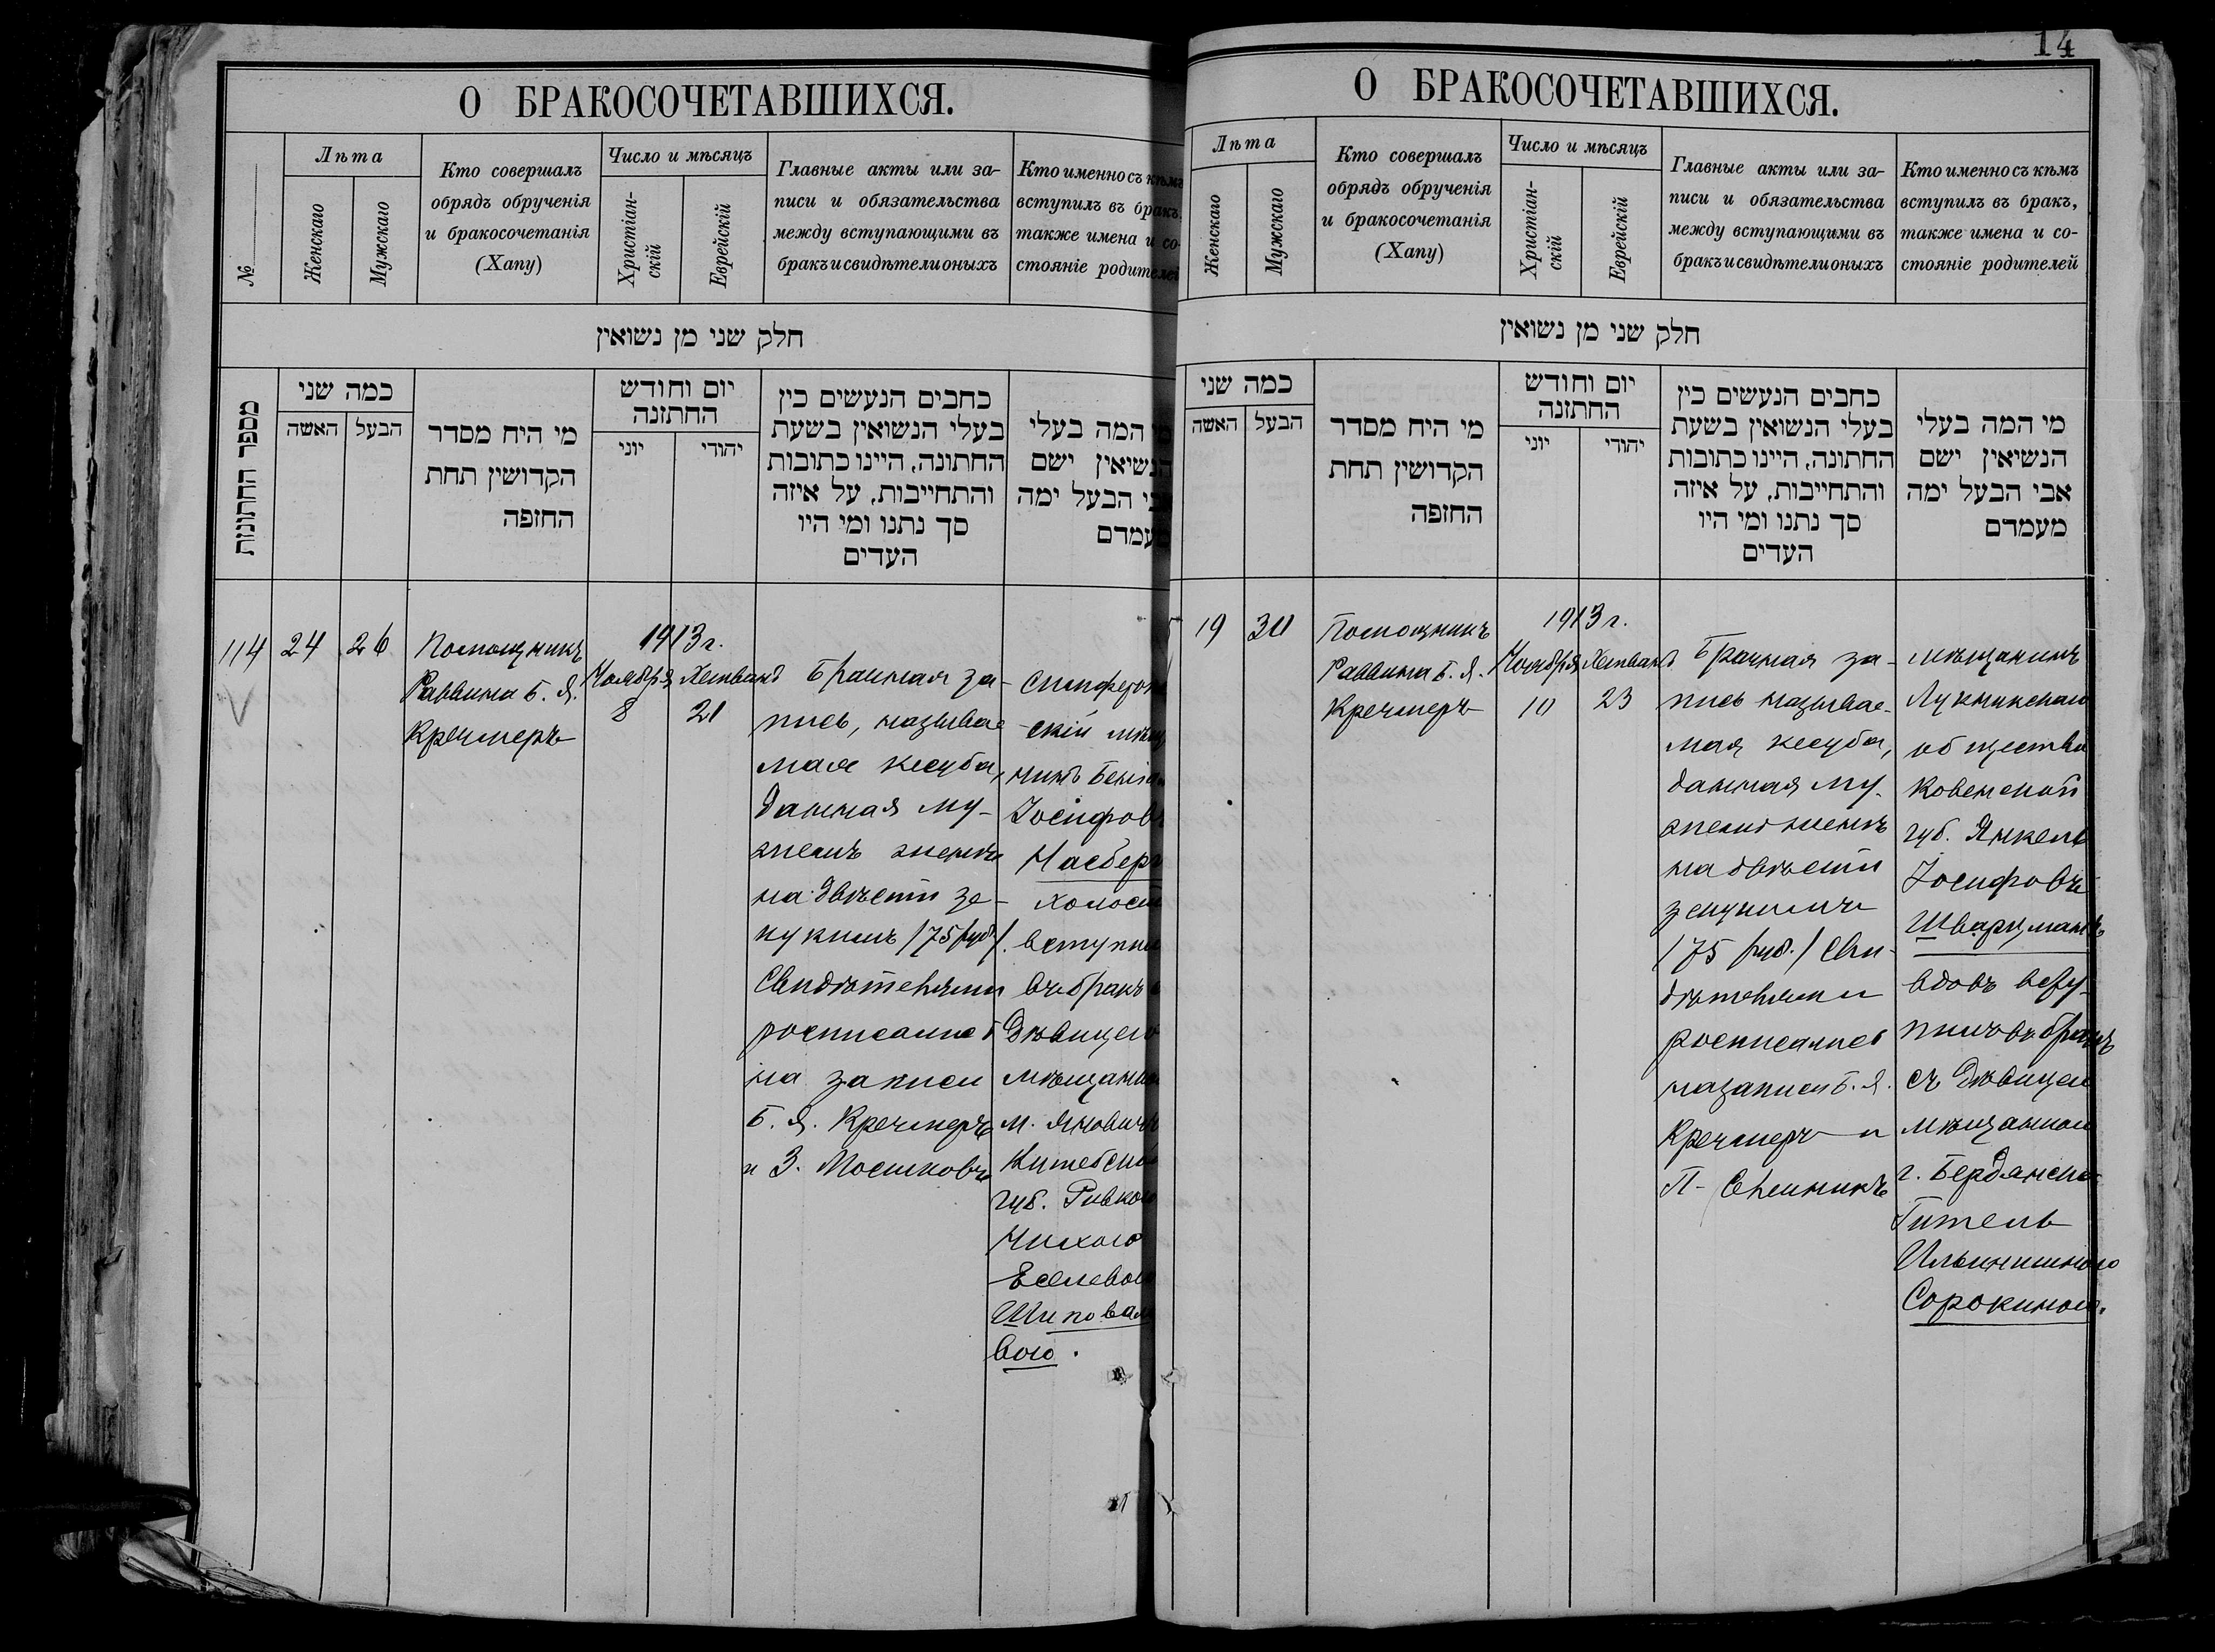 О БРАКОСОЧЕТАВШИХСЯ.
№
Лѣта
Женскаго
Мужскаго
Кто совершалъ
обрядъ обрученія
и бракосочетанія
(Хапу)
Число и мѣсяцъ
Христіан-
скій
Еврейскій
Главные акты или за-
писи и обязательства
между вступающими въ
бракъ и свидѣтели оныхъ
Кто именно съ кѣмъ
вступилъ въ бракъ,
также имена и со-
стояніе родителей
חלק שני מן נשואין
מספר החתונות
כמה שני
האשה
הבעל
מי היח מסדר
הקדושין תחת
החופה
יום וחודש
החתונה
יוני
יהודי
כחבים הנעשים כין
בעלי הנשואין בשעת
החתונה, היינו כתובות
והתחייבות, על איזה
סך נתנו ומי היו
העדים
המה בעלי
הנשיאין ישם
אבי הבעל ימה
מעמדם
114
24
26
Помощникъ
Раввина Б. Я.
Кречмеръ
1913 г.
Ноября
8
Хешванъ
21
Брачная за-
пись, называе
мая кесуба,
данная му-
жемъ женѣ
на двѣсти зе-
кукимъ /75 руб./.
Свидѣтелями
росписались
на записи
Б. Я. Кречмеръ
и З. Мосиковъ
Симферо
скій мѣщ
нинъ
Іосифов
Насберг
холост
вступи
въ бракъ
дѣвицею
мѣщанко
м. Яновичъ
Витебско
губ. Ривкою
Чихою
Еселевою
Шиповал
вою.
14
О БРАКОСОЧЕТАВШИХСЯ.
Лѣта
Женскаго
Мужскаго
Кто совершалъ
обрядъ обрученія
и бракосочетанія
(Хапу)
Число и мѣсяцъ
Христіан-
скій
Еврейскій
Главные акты или за-
писи и обязательства
между вступающими въ
бракъ и свидѣтели оныхъ
Кто именно съ кѣмъ
вступилъ въ бракъ,
также имена и со-
стояніе родителей
חלק שני מן נשואין
כמה שני
האשה
הבעל
מי היח מסדר
הקדושין תחת
החופה
יום וחודש
החתונה
יוני
יהודי
כחבים הנעשים כין
בעלי הנשואין בשעת
החתונה, היינו כתובות
והתחייבות, על איזה
סך נתנו ומי היו
העדים
מי המה בעלי
הנשיאין ישם
אבי הבעל ימה
מעמדם
19
30
Помощникъ
Раввина Б. Я.
Кречмеръ
1913 г.
Ноября
10
Хешванъ
23
Брачная за-
пись называе-
мая кесуба,
данная му-
жемъ женѣ
на двѣсти
зекукимъ
/75 руб./ Сви-
дѣтелями
росписались
на записи Б. Я.
Кречмеръ и
П.
мѣщанинъ
Лукникскаго
общества
Ковенской
губ. Янкель
Іосифовъ
Шварцманъ,
вдовъ всту-
пилъ въ бракъ
съ дѣвицею
мѣщанкою
г. Бердянска
Гитель
Ильиничною
Сорокиною.